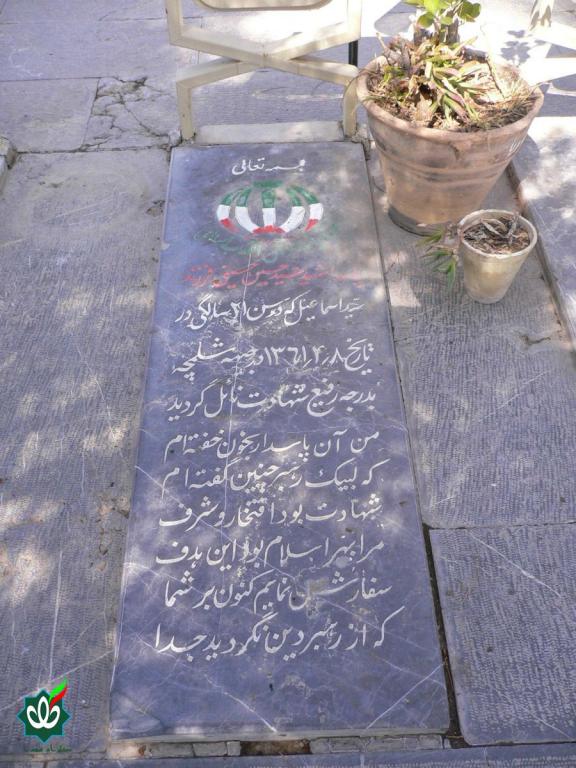 بسمه تعالی
شهید حسین حسینی فرزند
سید اسماعیل که در سن ۲۱ سالگی در
تاریخ ۱۳۶۱٫۴٫۸ در جبهه شلمچه
بدرجه رفیع شهادت نائل گردید
من آن پاسدار بخون خفته ام
که لبیک رهبر چنین گفته ام
شهادت بود افتخار و شرف
مرا بهر اسلام بود این هدف
سفارش نمایم کنون بر شما
که از رهبر دین نگردید جدا